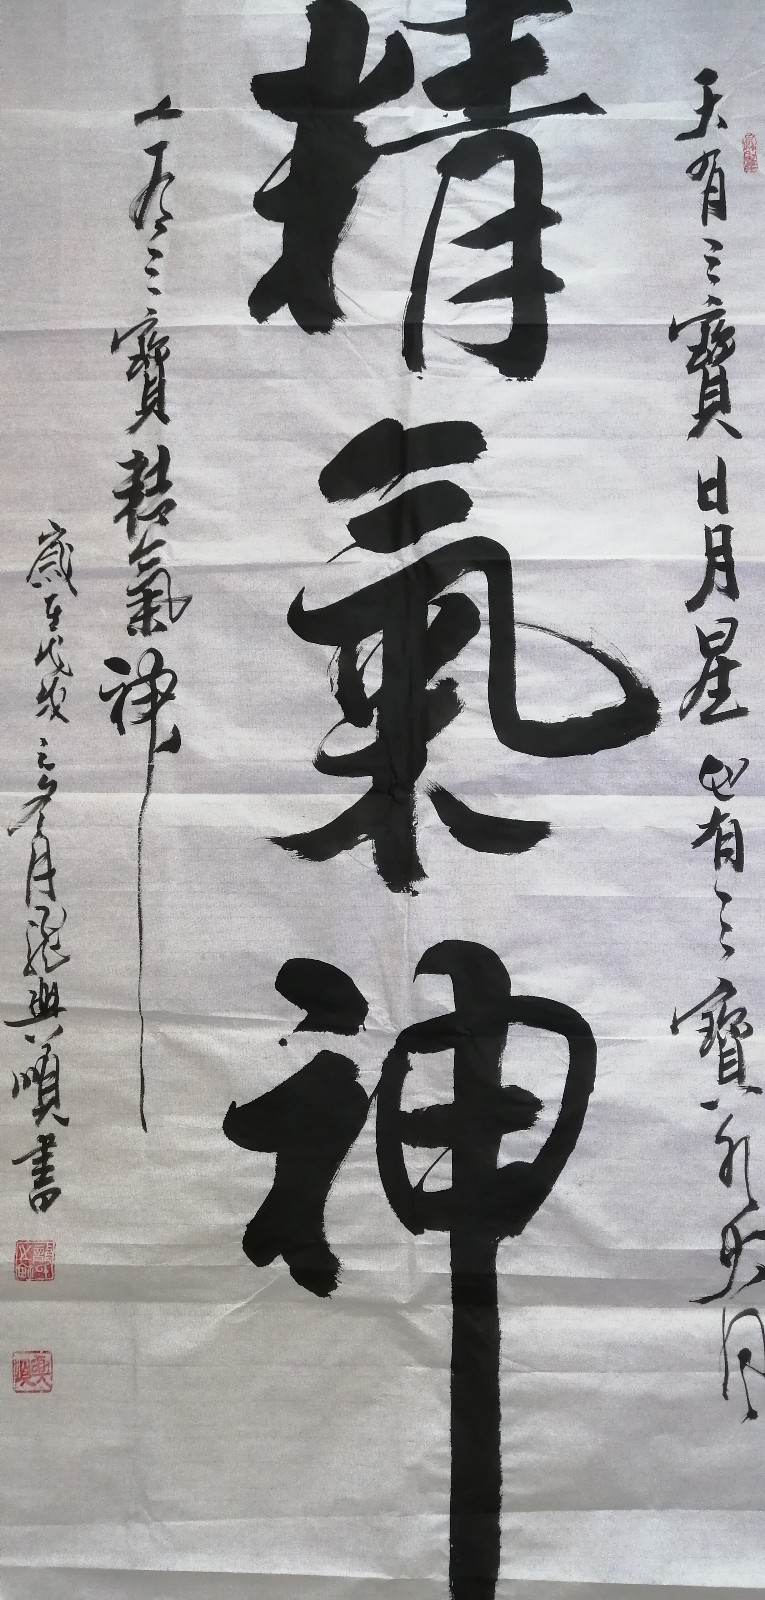 天有三寶日月星地有三寶水火風
精氣神
人有三寶精氣神
歲在戊戌之冬月龍興順書